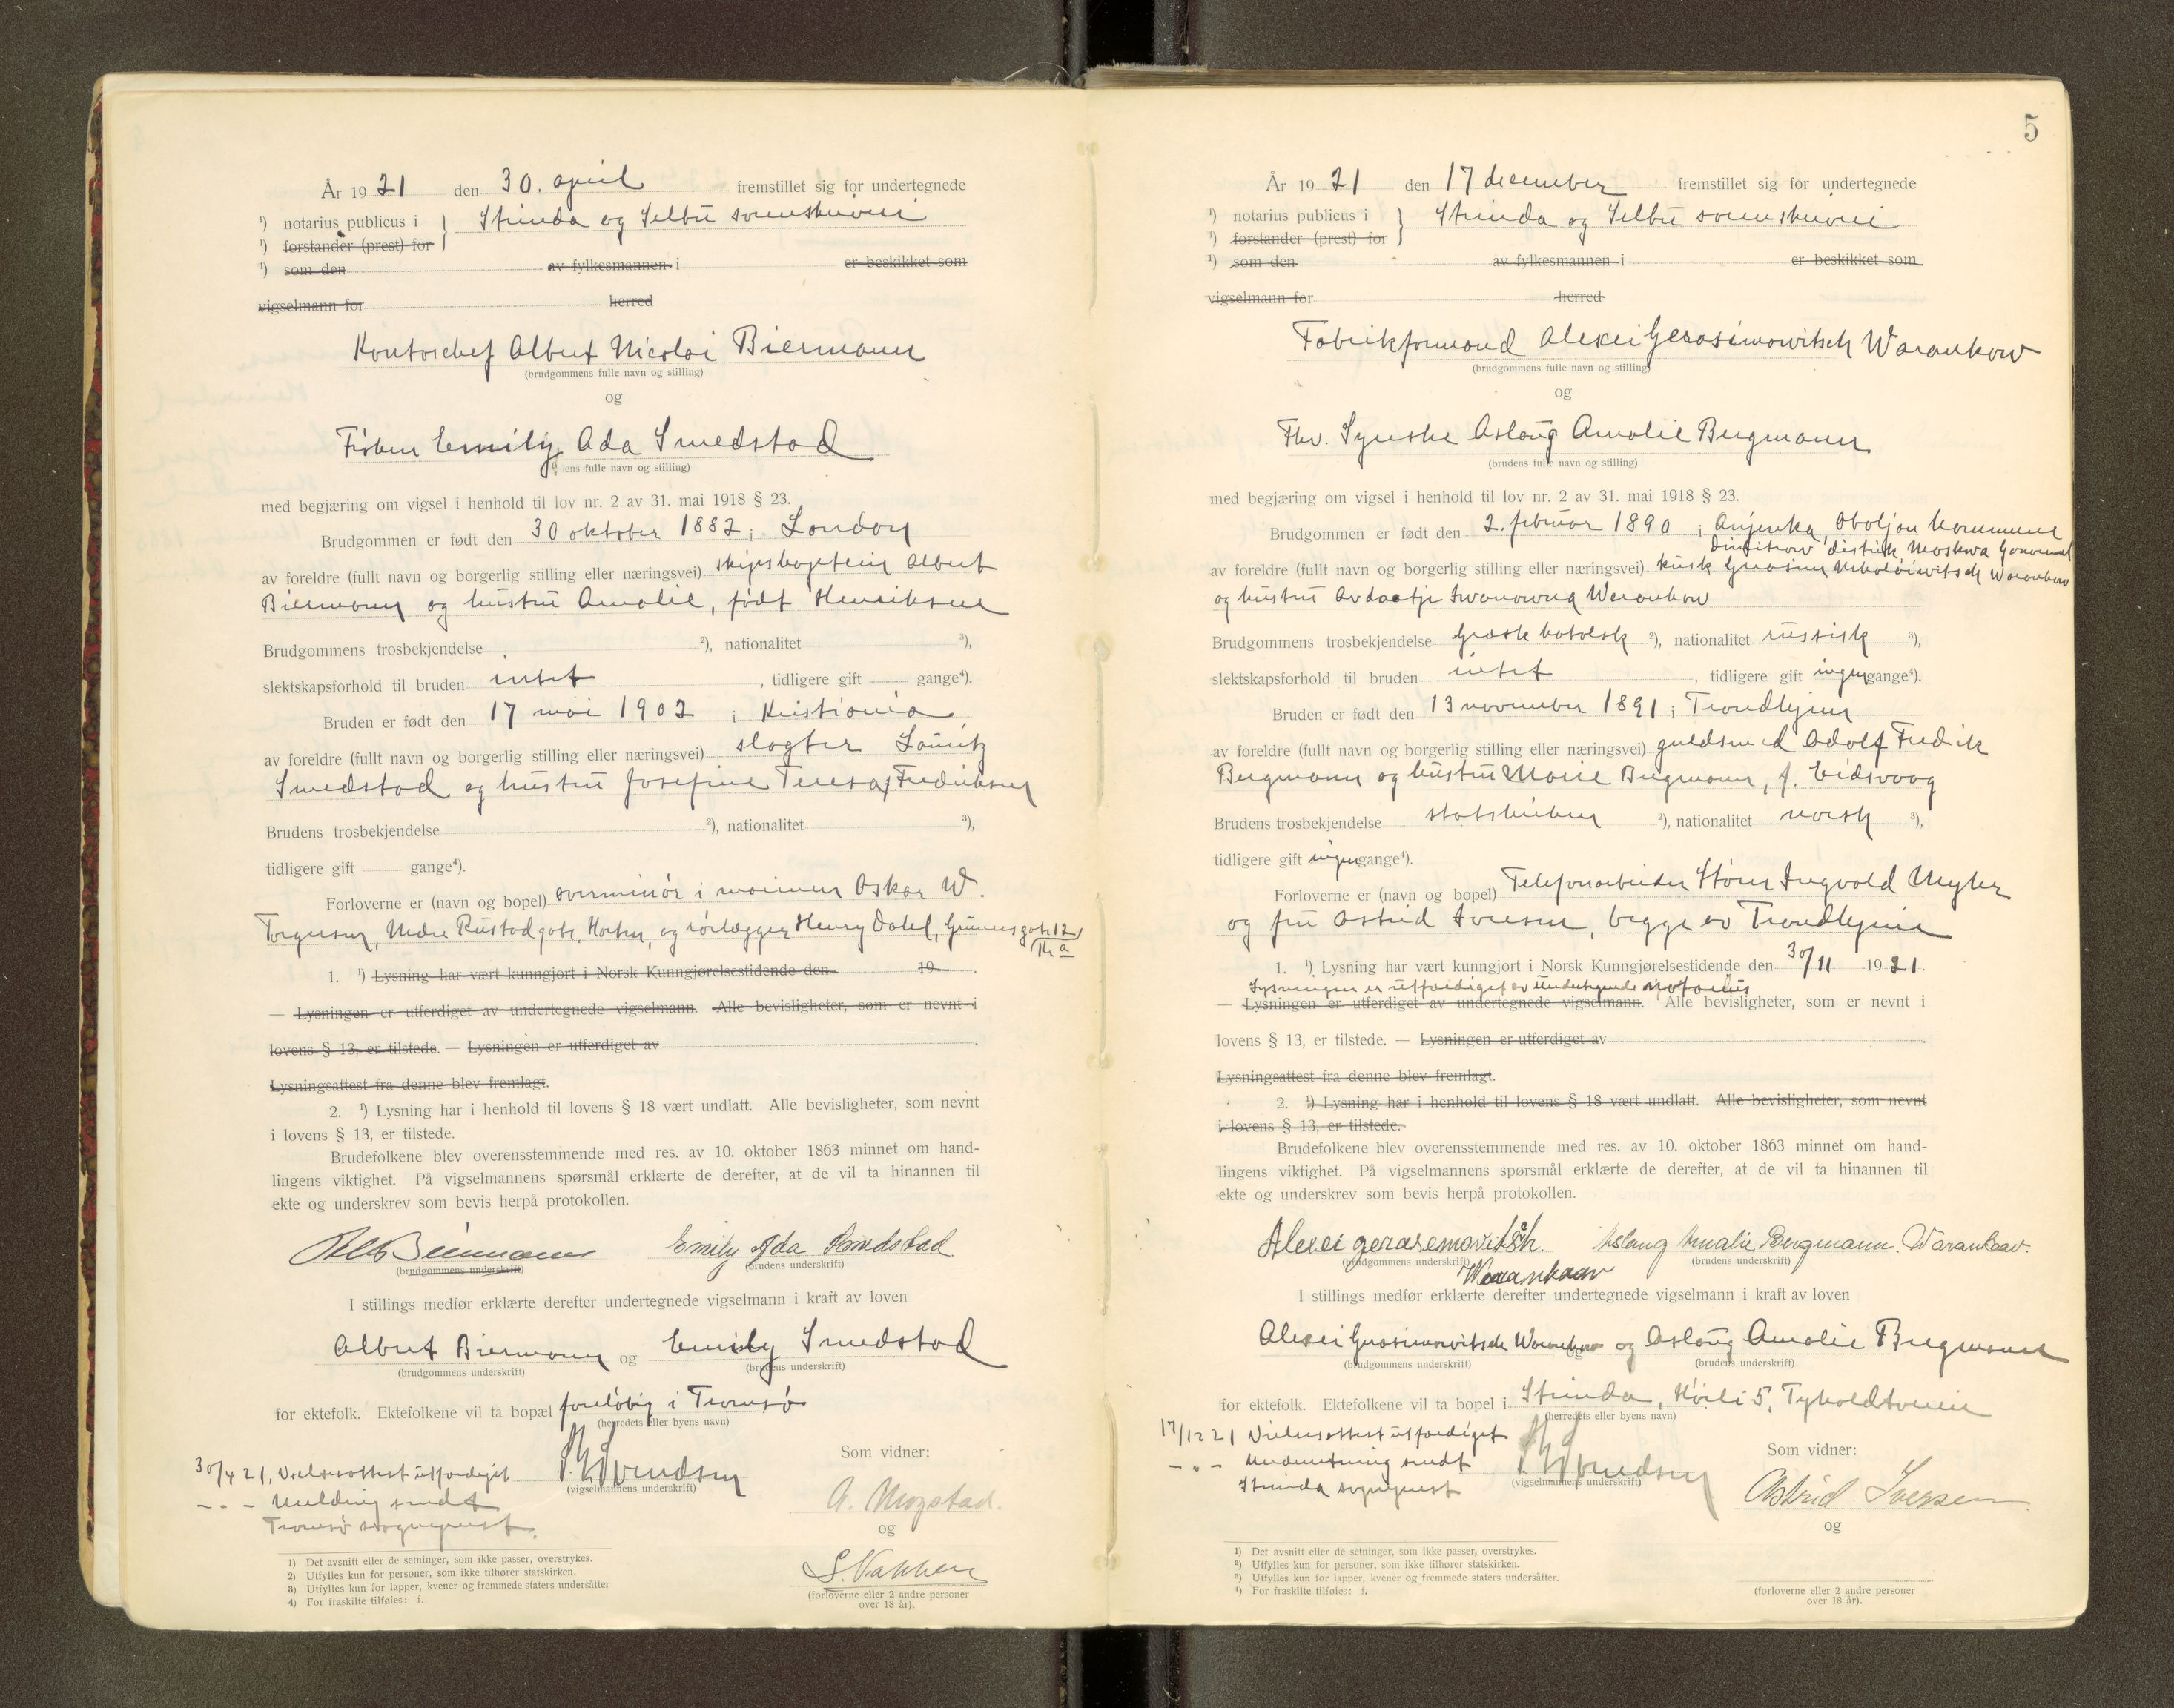 År 1921 den 30. april fremstillet sig for undertegnede
¹) notarius publicus i
¹) forstander (prest) for
Strinda og Selbu sorenskriveri
¹) som den av fylkesmannen i er beskikket som
vigselmann for herred
Kontorchef Albert Nicolai Biermann
(brudgommens fulle navn og stilling)
og
Frøken Emily Ada Smedstad
ens fulle navn og stilling)
med begjæring om vigsel i henhold til lov nr. 2 av 31. mai 1918 § 23.
Brudgommen er født den 30 oktober 1882 i London
av foreldre (fullt navn og borgerlig stilling eller næringsvei) skipskaptein Albert
Biermann og hustru Amalie, født Henriksen
Brudgommens trosbekjendelse ²), nationalitet ³),
slektskapsforhold til bruden intet , tidligere gift gange⁴).
Bruden er født den 17 mai 1902 i Kristiania
av foreldre (fullt navn og borgerlig stilling eller næringsvei) slagter Lauritz
Smedstad og hustru Josefine Teresa f. Fredriksen
Brudens trosbekjendelse ²), nationalitet ³),
tidligere gift gange⁴).
Forloverne er (navn og bopel) overminør i marinen Oskar W.
Torgersen, Nedre Rustadgate, Horten, og rørlægger Henry Dahl, Grünersgate 12
Kr.a
1. ¹) Lysning har vært kunngjort i Norsk Kunngjørelsestidende den 19 .
— Lysningen er utferdiget av undertegnede vigselmann. Alle bevisligheter, som er nevnt i
lovens § 13, er tilstede. — Lysningen er utferdiget av .
Lysningsattest fra denne blev fremlagt.
2. ¹) Lysning har i henhold til lovens § 18 vært undlatt. Alle bevisligheter, som nevnt
i lovens § 13, er tilstede.
Brudefolkene blev overensstemmende med res. av 10. oktober 1863 minnet om hand-
lingens viktighet. På vigselmannens spørsmål erklærte de derefter, at de vil ta hinannen til
ekte og underskrev som bevis herpå protokollen.
Biermann Emily Ada Smedstad
(brudgommens underskrift) (brudens underskrift)
I stillings medfør erklærte derefter undertegnede vigselmann i kraft av loven
Albert Biermann og Emily Smedstad
(brudgommens underskrift) (brudens underskrift)
for ektefolk. Ektefolkene vil ta bopæl foreløbig i Tromsø
(herredets eller byens navn)
30/4 21, Vielsesattest utfærdiget
— " — Melding sendt
Tromsø sogneprest.
Svendsen
(vigselmannens underskrift)
Som vidner:
A. Mogstad.
og
S. Nakken
(forloverne eller 2 andre personer
over 18 år).
1) Det avsnitt eller de setninger, som ikke passer, overstrykes.
2) Utfylles kun for personer, som ikke tilhører statskirken.
3) Utfylles kun for lapper, kvener og fremmede staters undersåtter
4) For fraskilte tilføies: f.
5
År 1921 den 17 december fremstillet sig for undertegnede
¹) notarius publicus i
¹) forstander (prest) for
Strinda og Selbu sorenskriveri
¹) som den av fylkesmannen i er beskikket som
vigselmann for herred
Fabrikformand Alexei Gerasimowitsch Warankow
(brudgommens fulle navn og stilling)
og
Fhv. Syerske Aslaug Amalie Bergmann
(brudens fulle navn og stilling)
med begjæring om vigsel i henhold til lov nr. 2 av 31. mai 1918 § 23.
Brudgommen er født den 2. februar 1890 i Anjenka, Oboljan kommune
Dimitrow distrikt, Moskwa
av foreldre (fullt navn og borgerlig stilling eller næringsvei) kusk Gerasim Nikolaiewitsch Warankow
og hustru Avdaatje Iwanowna Warankow
Brudgommens trosbekjendelse græsk katolsk ²), nationalitet russisk ³),
slektskapsforhold til bruden intet , tidligere gift ingen gange⁴).
Bruden er født den 13 november 1891 i Trondhjem
av foreldre (fullt navn og borgerlig stilling eller næringsvei) guldsmed Adolf Fredrik
Bergmann og hustru Marie Bergmann, f. Eidsvaag
Brudens trosbekjendelse statskirken ²), nationalitet norsk ³),
tidligere gift ingen gange⁴).
Forloverne er (navn og bopel) Telefonarbeider Ingvald Meyer
og fru Astrid Iversen, begge av Trondhjem
1. ¹) Lysning har vært kunngjort i Norsk Kunngjørelsestidende den 30/11 1921.
Lysningen er utfærdiget av undertegnede notarius
— Lysningen er utferdiget av undertegnede vigselmann. Alle bevisligheter, som er nevnt i
lovens § 13, er tilstede. — Lysningen er utferdiget av .
Lysningsattest fra denne blev fremlagt.
2. ¹) Lysning har i henhold til lovens § 18 vært undlatt. Alle bevisligheter, som nevnt
i lovens § 13, er tilstede.
Brudefolkene blev overensstemmende med res. av 10. oktober 1863 minnet om hand-
lingens viktighet. På vigselmannens spørsmål erklærte de derefter, at de vil ta hinannen til
ekte og underskrev som bevis herpå protokollen.
Alexei gerasemovitsh. Aslaug Amalie Bergmann. Warankaav.
(brudgommens underskrift) (brudens underskrift)
Warankaav
I stillings medfør erklærte derefter undertegnede vigselmann i kraft av loven
Alexei Gerasimowitsch Warankow og Aslaug Amalie Bergmann
(brudgommens underskrift) (brudens underskrift)
for ektefolk. Ektefolkene vil ta bopel i Strinda, Høili 5, Tyholdtveien
(herredets eller byens navn)
17/12 21 Vielsesattest utfærdiget
— " — Underretning sendt
Strinda sogneprest
Svendsen
(vigselmannens underskrift)
Som vidner:
Astrid Iversen
og
(forloverne eller 2 andre personer
over 18 år).
1) Det avsnitt eller de setninger, som ikke passer, overstrykes.
2) Utfylles kun for personer, som ikke tilhører statskirken.
3) Utfylles kun for lapper, kvener og fremmede staters undersåtter.
4) For fraskilte tilføies: f.